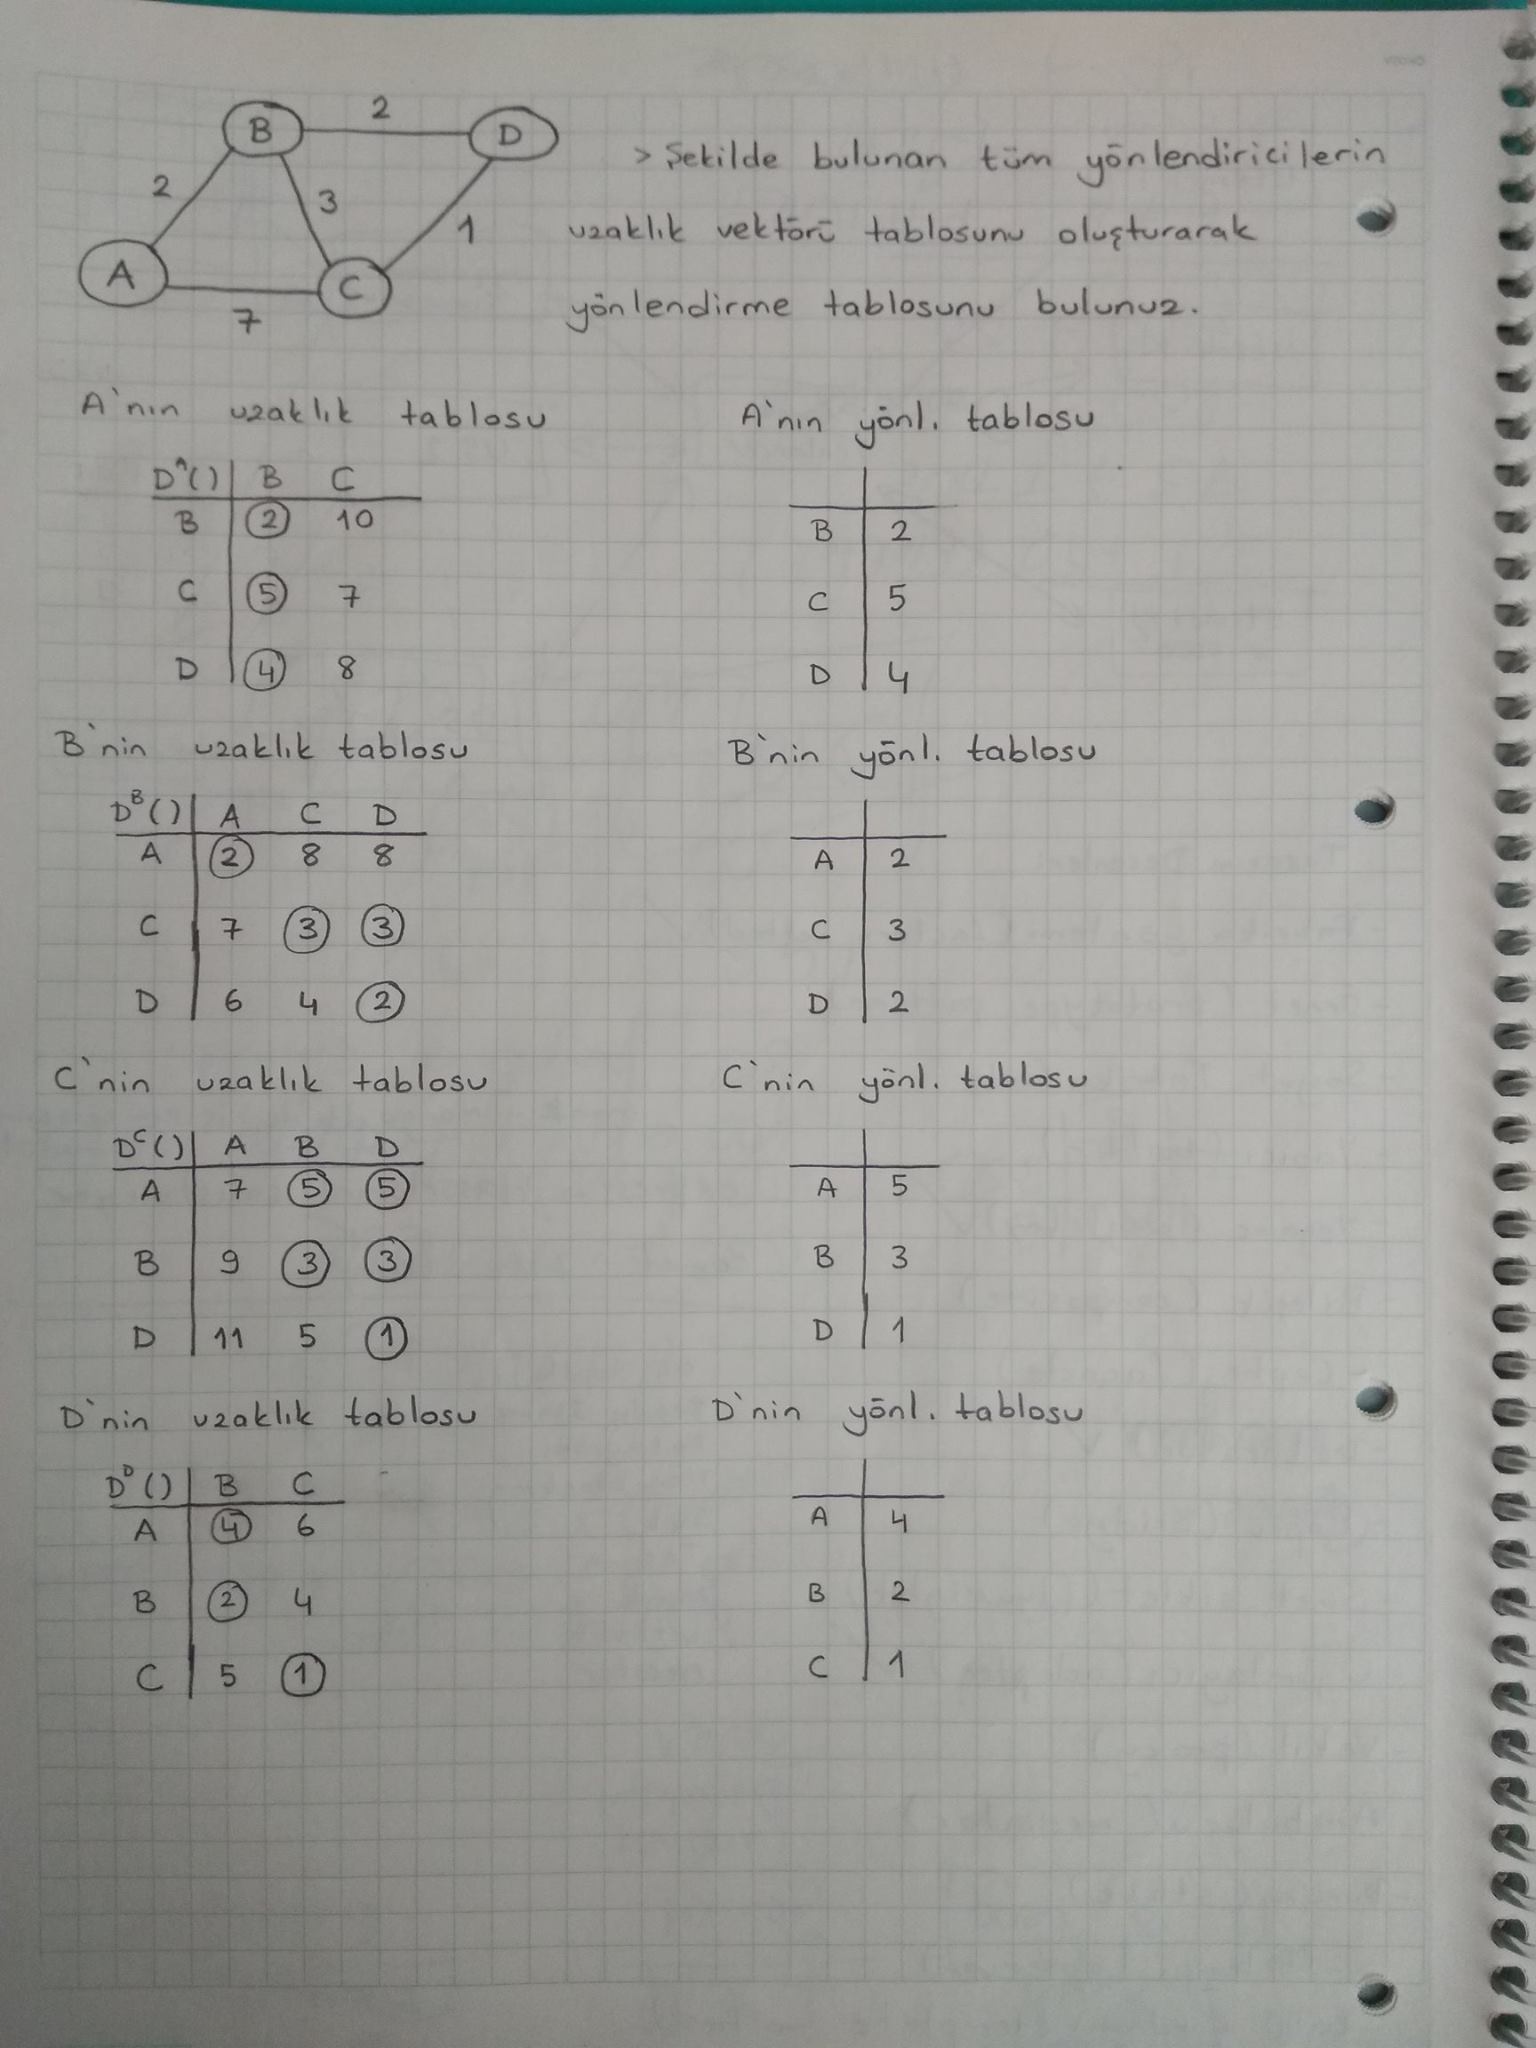 B 2 D
2 3 1
A C
7
> Şekilde bulunan tüm yönlendiricilerin
uzaklık vektörü tablosunu oluşturarak
yönlendirme tablosunu bulunuz.
A'nın uzaklık tablosu
D^A() B C
B 2 10
C 5 7
D 4 8
A'nın yönl. tablosu
B 2
C 5
D 4
B'nin uzaklık tablosu
D^B() A C D
A 2 8 8
C 7 3 3
D 6 4 2
B'nin yönl. tablosu
A 2
C 3
D 2
C'nin uzaklık tablosu
D^C() A B D
A 7 5 5
B 9 3 3
D 11 5 1
C'nin yönl. tablosu
A 5
B 3
D 1
D'nin uzaklık tablosu
D^D() B C
A 4 6
B 2 4
C 5 1
D'nin yönl. tablosu
A 4
B 2
C 1